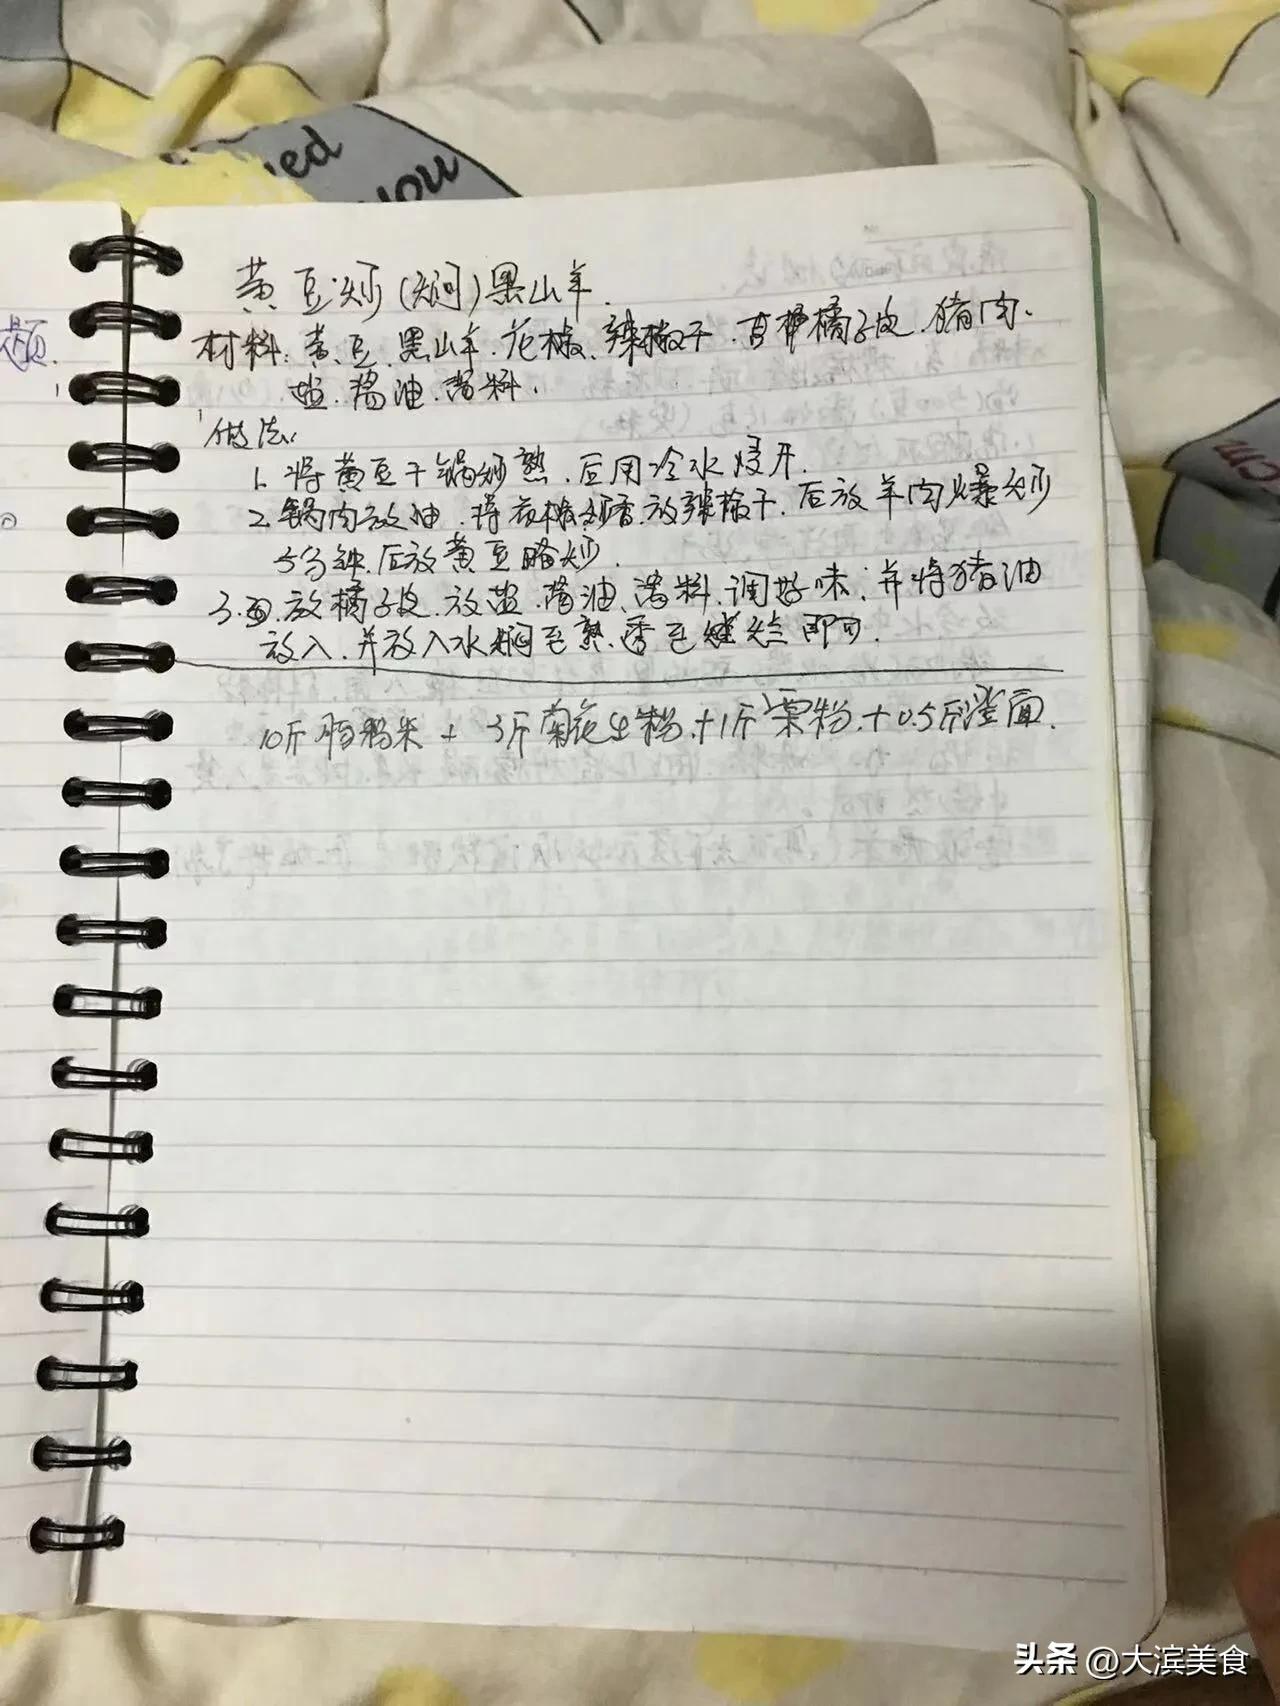 ned
you
cm
题.
黄豆炒(焖)黑山羊.
材料:黄豆.黑山羊.花椒、辣椒干.百橘子皮.猪肉.
盐.酱油.酒料.
做法:
1.将黄豆干锅炒熟.后用冷水浸开.
2.锅内放油.将花椒炒香.放辣椒干.后放羊肉爆炒
5分钟.后放黄豆略炒.
3.放橘子皮.放盐.酱油、酒料.调好味.并将猪油
放入.并放入水焖至熟.香至即可.
10斤米+3斤花生粉+1斤粟粉+0.5斤澄面.
头条@大滨美食